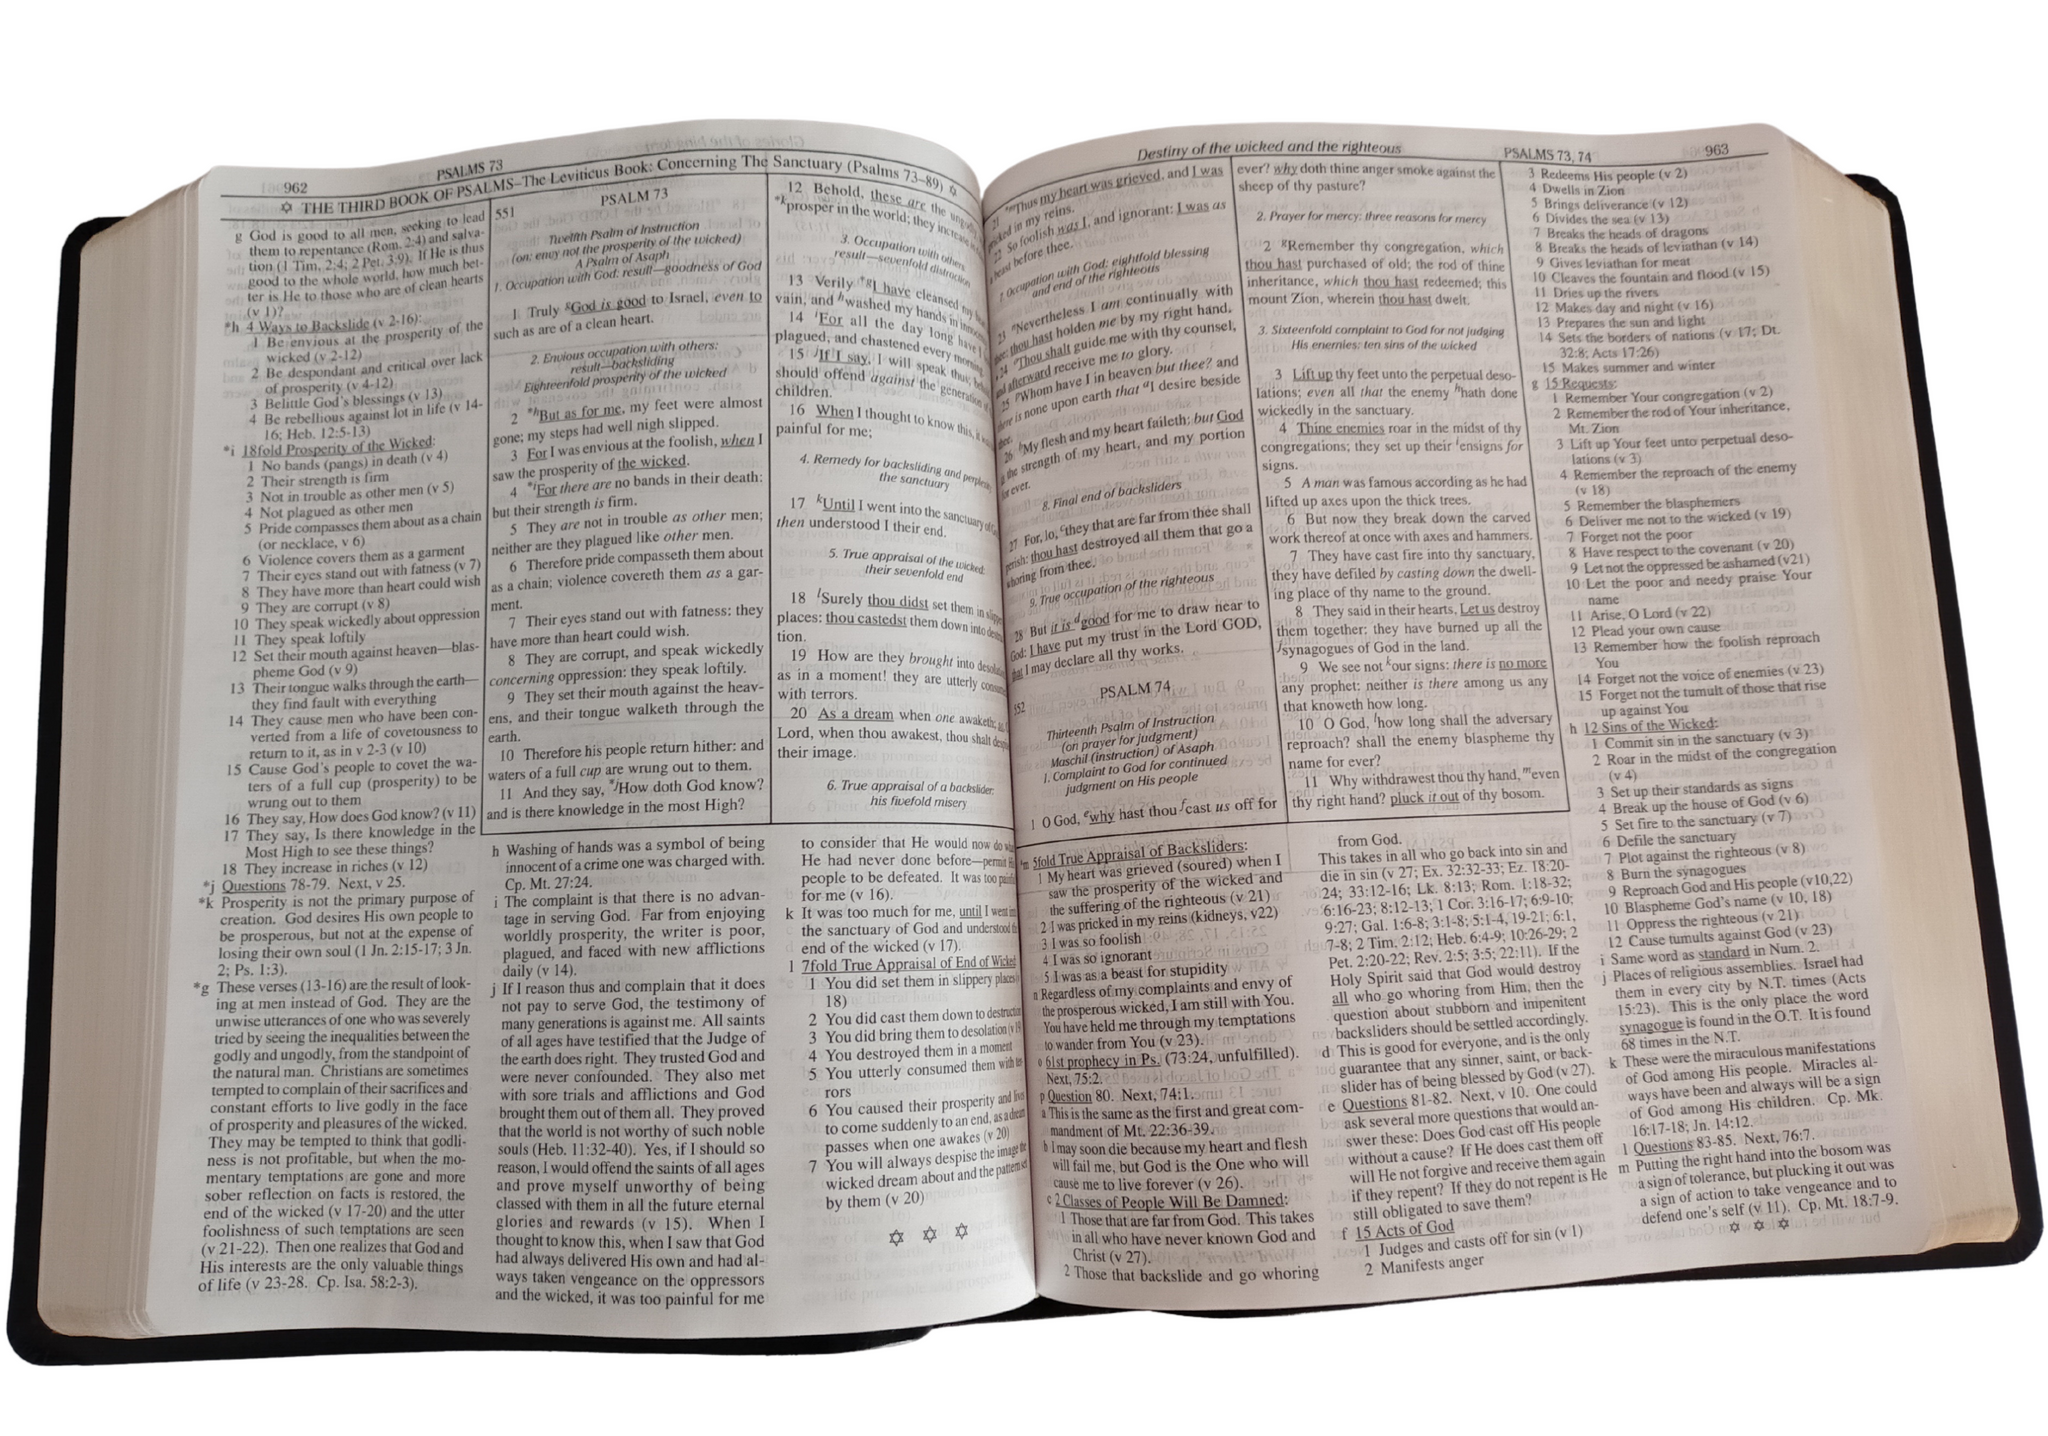 962
PSALMS 73
✡ THE THIRD BOOK OF PSALMS–The Leviticus Book: Concerning The Sanctuary (Psalms 73–89) ✡
g God is good to all men, seeking to lead
them to repentance (Rom. 2:4) and salva-
tion (1 Tim. 2:4; 2 Pet. 3:9). If He is thus
good to the whole world, how much bet-
ter is He to those who are of clean hearts
(v 1)?
*h 4 Ways to Backslide (v 2-16):
1 Be envious at the prosperity of the
wicked (v 2-12)
2 Be despondant and critical over lack
of prosperity (v 4-12)
3 Belittle God's blessings (v 13)
4 Be rebellious against lot in life (v 14-
16; Heb. 12:5-13)
*i 18fold Prosperity of the Wicked:
1 No bands (pangs) in death (v 4)
2 Their strength is firm
3 Not in trouble as other men (v 5)
4 Not plagued as other men
5 Pride compasses them about as a chain
(or necklace, v 6)
6 Violence covers them as a garment
7 Their eyes stand out with fatness (v 7)
8 They have more than heart could wish
9 They are corrupt (v 8)
10 They speak wickedly about oppression
11 They speak loftily
12 Set their mouth against heaven—blas-
pheme God (v 9)
13 Their tongue walks through the earth—
they find fault with everything
14 They cause men who have been con-
verted from a life of covetousness to
return to it, as in v 2-3 (v 10)
15 Cause God's people to covet the wa-
ters of a full cup (prosperity) to be
wrung out to them
16 They say, How does God know? (v 11)
17 They say, Is there knowledge in the
Most High to see these things?
18 They increase in riches (v 12)
*j Questions 78-79. Next, v 25.
*k Prosperity is not the primary purpose of
creation. God desires His own people to
be prosperous, but not at the expense of
losing their own soul (1 Jn. 2:15-17; 3 Jn.
2; Ps. 1:3).
*g These verses (13-16) are the result of look-
ing at men instead of God. They are the
unwise utterances of one who was severely
tried by seeing the inequalities between the
godly and ungodly, from the standpoint of
the natural man. Christians are sometimes
tempted to complain of their sacrifices and
constant efforts to live godly in the face
of prosperity and pleasures of the wicked.
They may be tempted to think that godli-
ness is not profitable, but when the mo-
mentary temptations are gone and more
sober reflection on facts is restored, the
end of the wicked (v 17-20) and the utter
foolishness of such temptations are seen
(v 21-22). Then one realizes that God and
His interests are the only valuable things
of life (v 23-28. Cp. Isa. 58:2-3).
551
PSALM 73
Twelfth Psalm of Instruction
(on: envy not the prosperity of the wicked)
A Psalm of Asaph
1. Occupation with God: result—goodness of God
1 Truly gGod is good to Israel, even to
such as are of a clean heart.
2. Envious occupation with others:
result—backsliding
Eighteenfold prosperity of the wicked
2 *hBut as for me, my feet were almost
gone; my steps had well nigh slipped.
3 For I was envious at the foolish, when I
saw the prosperity of the wicked.
4 *iFor there are no bands in their death:
but their strength is firm.
5 They are not in trouble as other men;
neither are they plagued like other men.
6 Therefore pride compasseth them about
as a chain; violence covereth them as a gar-
ment.
7 Their eyes stand out with fatness: they
have more than heart could wish.
8 They are corrupt, and speak wickedly
concerning oppression: they speak loftily.
9 They set their mouth against the heav-
ens, and their tongue walketh through the
earth.
10 Therefore his people return hither: and
waters of a full cup are wrung out to them.
11 And they say, *jHow doth God know?
and is there knowledge in the most High?
12 Behold, these are the
*kprosper in the world; they increase
3. Occupation with others,
result—sevenfold distraction
13 Verily *gI have cleansed
vain, and hwashed my hands in
14 iFor all the day long have I
plagued, and chastened every
15 jIf I say, I will speak thus;
should offend against the generation
children.
16 When I thought to know this, it
painful for me;
4. Remedy for backsliding and
the sanctuary
17 kUntil I went into the sanctuary
then understood I their end.
5. True appraisal of the wicked:
their sevenfold end
18 lSurely thou didst set them in
places: thou castedst them down into
tion.
19 How are they brought into
as in a moment! they are utterly
with terrors.
20 As a dream when one awaketh;
Lord, when thou awakest, thou shalt
their image.
6. True appraisal of a backslider:
his fivefold misery
h Washing of hands was a symbol of being
innocent of a crime one was charged with.
Cp. Mt. 27:24.
i The complaint is that there is no advan-
tage in serving God. Far from enjoying
worldly prosperity, the writer is poor,
plagued, and faced with new afflictions
daily (v 14).
j If I reason thus and complain that it does
not pay to serve God, the testimony of
many generations is against me. All saints
of all ages have testified that the Judge of
the earth does right. They trusted God and
were never confounded. They also met
with sore trials and afflictions and God
brought them out of them all. They proved
that the world is not worthy of such noble
souls (Heb. 11:32-40). Yes, if I should so
reason, I would offend the saints of all ages
and prove myself unworthy of being
classed with them in all the future eternal
glories and rewards (v 15). When I
thought to know this, when I saw that God
had always delivered His own and had al-
ways taken vengeance on the oppressors
and the wicked, it was too painful for me
to consider that He would now do
He had never done before—permit
people to be defeated. It was too
for me (v 16).
k It was too much for me, until I went
the sanctuary of God and understood
end of the wicked (v 17).
l 7fold True Appraisal of End of Wicked
1 You did set them in slippery places
18)
2 You did cast them down to destruction
3 You did bring them to desolation
4 You destroyed them in a moment
5 You utterly consumed them with
rors
6 You caused their prosperity and
to come suddenly to an end, as a dream
passes when one awakes (v 20)
7 You will always despise the image
wicked dream about and the pattern
by them (v 20)
✡ ✡ ✡
Destiny of the wicked and the righteous
PSALMS 73, 74
963
21 *mThus my heart was grieved, and I was
in my reins.
22 So foolish was I, and ignorant: I was as
beast before thee.
7. Occupation with God: eightfold blessing
and end of the righteous
23 nNevertheless I am continually with
thee: thou hast holden me by my right hand.
24 oThou shalt guide me with thy counsel,
and afterward receive me to glory.
25 pWhom have I in heaven but thee? and
there is none upon earth that aI desire beside
thee.
26 bMy flesh and my heart faileth: but God
is the strength of my heart, and my portion
for ever.
8. Final end of backsliders
27 For, lo, cthey that are far from thee shall
perish: thou hast destroyed all them that go a
whoring from thee.
9. True occupation of the righteous
28 But it is dgood for me to draw near to
God: I have put my trust in the Lord GOD,
that I may declare all thy works.
PSALM 74
552
Thirteenth Psalm of Instruction
(on prayer for judgment)
Maschil (instruction) of Asaph
1. Complaint to God for continued
judgment on His people
1 O God, ewhy hast thou fcast us off for
ever? why doth thine anger smoke against the
sheep of thy pasture?
2. Prayer for mercy: three reasons for mercy
2 gRemember thy congregation, which
thou hast purchased of old; the rod of thine
inheritance, which thou hast redeemed; this
mount Zion, wherein thou hast dwelt.
3. Sixteenfold complaint to God for not judging
His enemies: ten sins of the wicked
3 Lift up thy feet unto the perpetual deso-
lations; even all that the enemy hhath done
wickedly in the sanctuary.
4 Thine enemies roar in the midst of thy
congregations; they set up their iensigns for
signs.
5 A man was famous according as he had
lifted up axes upon the thick trees.
6 But now they break down the carved
work thereof at once with axes and hammers.
7 They have cast fire into thy sanctuary,
they have defiled by casting down the dwell-
ing place of thy name to the ground.
8 They said in their hearts, Let us destroy
them together: they have burned up all the
jsynagogues of God in the land.
9 We see not kour signs: there is no more
any prophet: neither is there among us any
that knoweth how long.
10 O God, lhow long shall the adversary
reproach? shall the enemy blaspheme thy
name for ever?
11 Why withdrawest thou thy hand, meven
thy right hand? pluck it out of thy bosom.
*m 5fold True Appraisal of Backsliders:
1 My heart was grieved (soured) when I
saw the prosperity of the wicked and
the suffering of the righteous (v 21)
2 I was pricked in my reins (kidneys, v22)
3 I was so foolish
4 I was so ignorant
5 I was as a beast for stupidity
n Regardless of my complaints and envy of
the prosperous wicked, I am still with You.
You have held me through my temptations
to wander from You (v 23).
o 61st prophecy in Ps. (73:24, unfulfilled).
Next, 75:2.
p Question 80. Next, 74:1.
a This is the same as the first and great com-
mandment of Mt. 22:36-39.
b I may soon die because my heart and flesh
will fail me, but God is the One who will
cause me to live forever (v 26).
c 2 Classes of People Will Be Damned:
1 Those that are far from God. This takes
in all who have never known God and
Christ (v 27).
2 Those that backslide and go whoring
from God.
This takes in all who go back into sin and
die in sin (v 27; Ex. 32:32-33; Ez. 18:20-
24; 33:12-16; Lk. 8:13; Rom. 1:18-32;
6:16-23; 8:12-13; 1 Cor. 3:16-17; 6:9-10;
9:27; Gal. 1:6-8; 3:1-8; 5:1-4, 19-21; 6:1,
7-8; 2 Tim. 2:12; Heb. 6:4-9; 10:26-29; 2
Pet. 2:20-22; Rev. 2:5; 3:5; 22:11). If the
Holy Spirit said that God would destroy
all who go whoring from Him, then the
question about stubborn and impenitent
backsliders should be settled accordingly.
d This is good for everyone, and is the only
guarantee that any sinner, saint, or back-
slider has of being blessed by God (v 27).
e Questions 81-82. Next, v 10. One could
ask several more questions that would an-
swer these: Does God cast off His people
without a cause? If He does cast them off
will He not forgive and receive them again
if they repent? If they do not repent is He
still obligated to save them?
f 15 Acts of God
1 Judges and casts off for sin (v 1)
2 Manifests anger
3 Redeems His people (v 2)
4 Dwells in Zion
5 Brings deliverance (v 12)
6 Divides the sea (v 13)
7 Breaks the heads of dragons
8 Breaks the heads of leviathan (v 14)
9 Gives leviathan for meat
10 Cleaves the fountain and flood (v 15)
11 Dries up the rivers
12 Makes day and night (v 16)
13 Prepares the sun and light
14 Sets the borders of nations (v 17; Dt.
32:8; Acts 17:26)
15 Makes summer and winter
g 15 Requests:
1 Remember Your congregation (v 2)
2 Remember the rod of Your inheritance,
Mt. Zion
3 Lift up Your feet unto perpetual deso-
lations (v 3)
4 Remember the reproach of the enemy
(v 18)
5 Remember the blasphemers
6 Deliver me not to the wicked (v 19)
7 Forget not the poor
8 Have respect to the covenant (v 20)
9 Let not the oppressed be ashamed (v21)
10 Let the poor and needy praise Your
name
11 Arise, O Lord (v 22)
12 Plead your own cause
13 Remember how the foolish reproach
You
14 Forget not the voice of enemies (v 23)
15 Forget not the tumult of those that rise
up against You
h 12 Sins of the Wicked:
1 Commit sin in the sanctuary (v 3)
2 Roar in the midst of the congregation
(v 4)
3 Set up their standards as signs
4 Break up the house of God (v 6)
5 Set fire to the sanctuary (v 7)
6 Defile the sanctuary
7 Plot against the righteous (v 8)
8 Burn the synagogues
9 Reproach God and His people (v10,22)
10 Blaspheme God's name (v 10, 18)
11 Oppress the righteous (v 21)
12 Cause tumults against God (v 23)
i Same word as standard in Num. 2.
j Places of religious assemblies. Israel had
them in every city by N.T. times (Acts
15:23). This is the only place the word
synagogue is found in the O.T. It is found
68 times in the N.T.
k These were the miraculous manifestations
of God among His people. Miracles al-
ways have been and always will be a sign
of God among His children. Cp. Mk.
16:17-18; Jn. 14:12.
l Questions 83-85. Next, 76:7.
m Putting the right hand into the bosom was
a sign of tolerance, but plucking it out was
a sign of action to take vengeance and to
defend one's self (v 11). Cp. Mt. 18:7-9.
✡ ✡ ✡